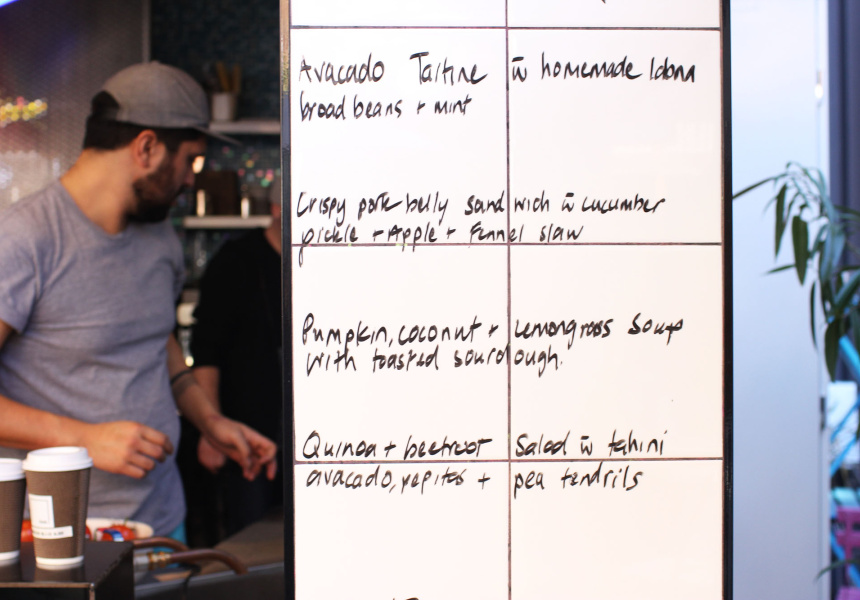 Avacado Tartine w̄ homemade labna
broad beans + mint
Crispy pork belly sandwich w̄ cucumber
pickle + Apple + Fennel slaw
Pumpkin, coconut + Lemongrass Soup
with toasted sourdough.
Quinoa + beetroot Salad w̄ tahini
avacado, pepitas + pea tendrils